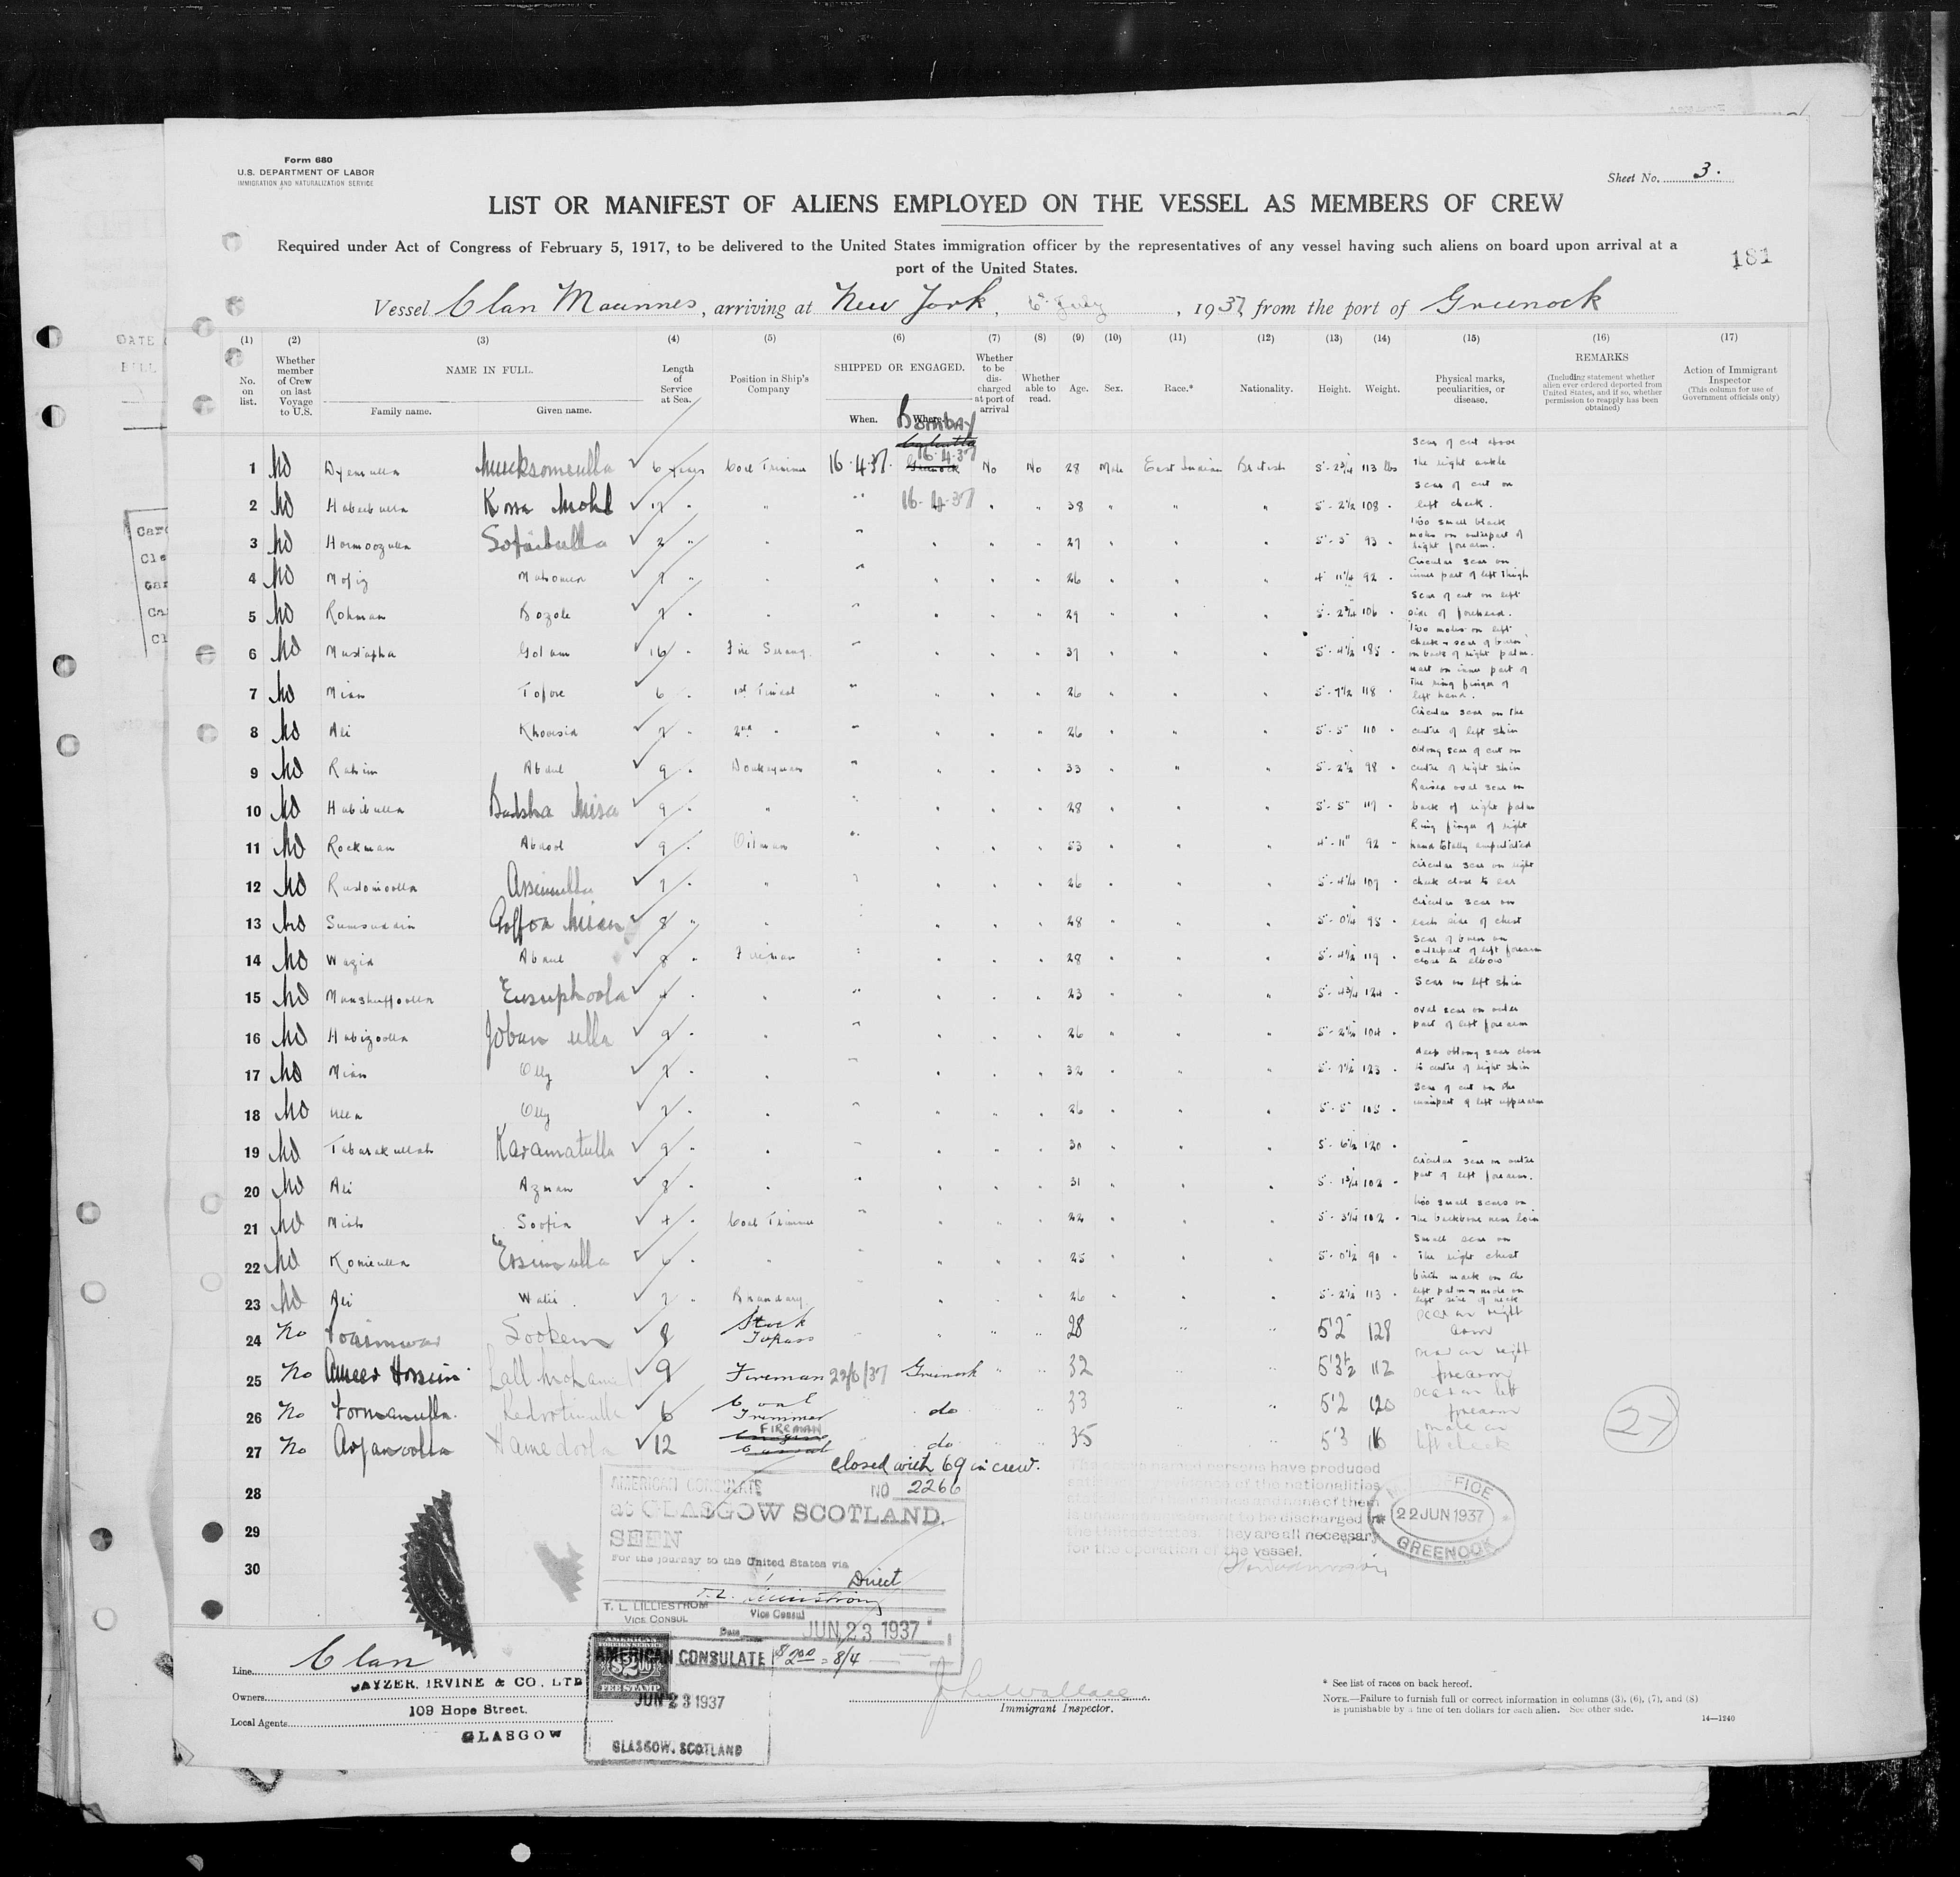 Form 680
U.S. DEPARTMENT OF LABOR
IMMIGRATION AND NATURALIZATION SERVICE
Sheet No. 3.
LIST OR MANIFEST OF ALIENS EMPLOYED ON THE VESSEL AS MEMBERS OF CREW
Required under Act of Congress of February 5, 1917, to be delivered to the United States immigration officer by the representatives of any vessel having such aliens on board upon arrival at a
port of the United States.
181
Vessel Clan Macinnes, arriving at New York, 6th July, 1937, from the port of Greenock
(1) (2) (3) (4) (5) (6) (7) (8) (9) (10) (11) (12) (13) (14) (15) (16) (17)
No. on list.
Whether member of Crew on last Voyage to U.S.
NAME IN FULL.
Family name. Given name.
Length of Service at Sea.
Position in Ship's Company
SHIPPED OR ENGAGED.
When. Where.
Whether to be discharged at port of arrival
Whether able to read.
Age. Sex. Race.* Nationality. Height. Weight.
Physical marks, peculiarities, or disease.
REMARKS
(Including statement whether alien ever ordered deported from United States, and if so, whether permission to reapply has been obtained)
Action of Immigrant Inspector
(This column for use of Government officials only)
Bombay
Calcutta
1 No 6 years Coal Trimmer 16.4.37 16.4.37 Greenock No No 28 Male East Indian British 5'-2¾ 113 lbs Scar of cut above the right ankle
2 No Habibulla Kossa Mohd 17 " " " 16.4.37 " " 38 " " " 5'-2½ 108 Scar of cut on left cheek.
3 No Hormoozulla 2 " " " " " " 27 " " " 5'-5" 93 Two small black moles on outerpart of right forearm.
4 No Mofiz Mahomed 7 " " " " " " 26 " " " 4' 11¼ 92 Circular scar on inner part of left thigh
5 No Rohman Bozole 7 " " " " " " 29 " " " 106 Scar of cut on left side of forehead.
6 No Mustapha Golam 16 " Fire Serang " " " " 37 " " " 5'-4½ 185 Two moles on left cheek & scar of burn on back of right palm.
7 No Mian Tofore 6 " 1st Tindal " " " " 26 " " " 5'-7½ 118 Wart on inner part of the ring finger of left hand.
8 No Ali Khoorsid 7 " 2nd " " " " " 26 " " " 5'-5" 110 Circular scar on the centre of left shin
9 No Rahim Abdul 9 " Donkeyman " " " " 33 " " " 5'-2½ 98 Oblong scar of cut on centre of right shin
10 No Habibulla Badsha Misa 9 " " " " " " 28 " " " 5'-5" 117 Raised oval scar on back of right palm
11 No Rockman Abdool 9 " Oilman " " " " 53 " " " 4'-11" 92 Ring finger of right hand totally amputated
12 No Rustomoolla 7 " " " " " " 26 " " " 5'-4¼ 107 Circular scar on right cheek close to ear
13 No Sumsuddin Goffoa Mian 8 " " " " " " 28 " " " 5'-0¼ 95 Circular scar on each side of chest
14 No Wazid Abdul 8 " Fireman " " " " 28 " " " 5'-4½ 119 Scar of burn on outerpart of left forearm close to elbow
15 No Munshuffoolla Eusuphoola 4 " " " " " " 23 " " " 5'-4¾ 124 Scar on left shin
16 No Habizoolla Joban ulla 9 " " " " " " 26 " " " 5'-2½ 104 Oval scar on outer part of left forearm
17 No Mian Olly 7 " " " " " " 32 " " " 123 Deep oblong scar close to centre of right shin
18 No Ulla Olly 7 " " " " " " 26 " " " 5'-5" 105 Scar of cut on the innerpart of left upperarm
19 No Tabarakullah Karamatulla 9 " " " " " " 30 " " " 5'-6½ 120 -
20 No Ali Azman 8 " " " " " " 31 " " " 5'-1¾ 102 Circular scar on outer part of left forearm.
21 No Miah Soofia 4 " Coal Trimmer " " " " 22 " " " 5'-3¼ 102 Two small scars on the backbone near loin
22 No Komeulla 6 " " " " " " 25 " " " 5'-0½ 90 Small scar on the right chest
23 No Ali Walii 7 " Bhandary " " " " 26 " " " 5'-2½ 113 Birth mark on the left palm & mole on left side of neck
24 No Sookem 8 Stock Topass " " " " 28 " " 5'2" 128 Scar on right arm
25 No Ameer Hossein Lall Mohamed 9 Fireman 22/6/37 Greenock " " 32 " " 5'3½ 112 Scar on right forearm
26 No 6 Coal Trimmer do " " 33 " " 5'2 120 Scar on left forearm
27 No Hamedoola 12 FIREMAN do " " 35 " " 5'3 116 Mole on left cheek
closed with 69 in crew.
28
29
30
27
AMERICAN CONSULATE
NO 2266
at GLASGOW SCOTLAND.
SEEN
For the journey to the United States via
Direct
T. L. LILLIESTROM
VICE CONSUL
Vice Consul
Date JUN 23 1937
$2.00 = 8/4
The above named persons have produced
satisfactory evidence of the nationalities
stated against their names and none of them
is under agreement to be discharged in
the United States. They are all necessary
for the operation of the vessel.
22 JUN 1937
GREENOCK
AMERICAN
FOREIGN SERVICE
$2.00
FEE STAMP
AMERICAN CONSULATE
JUN 23 1937
GLASGOW, SCOTLAND
Line Clan
Owners CAYZER, IRVINE & CO., LTD
109 Hope Street.
Local Agents
GLASGOW
John Wallace
Immigrant Inspector.
* See list of races on back hereof.
NOTE.—Failure to furnish full or correct information in columns (3), (6), (7), and (8)
is punishable by a fine of ten dollars for each alien. See other side.
14—1240